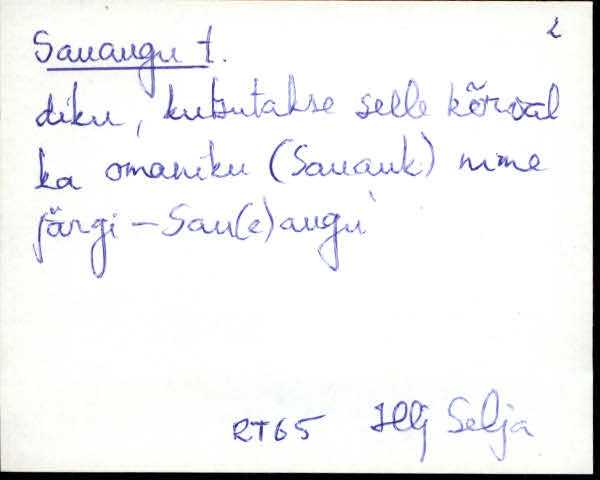 2
Sauaugu t.
diku, kutsutakse selle kõrval
ka omaniku (Sauauk) nime
järgi – Sau(e)augu
RT65 Hlj Selja